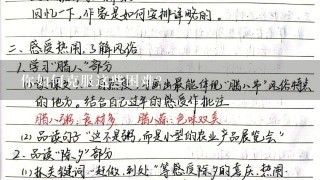 回忆一下,作家是如何安排详略的。
二、感受热闹,了解风俗
1. 学习“腊八”部分
你如何克服这些困难?
画出最能体现“腊八节”风俗特点
的地方。结合自己过年的感受作批注
腊八粥:食材多 腊八蒜:色味双美
(2) 品读句子“这不是粥,而是小型的农业产品展览会”
2. 品读“除夕”部分
(1) 抓关键词“赶做、到处”等感受除夕的喜庆、热闹